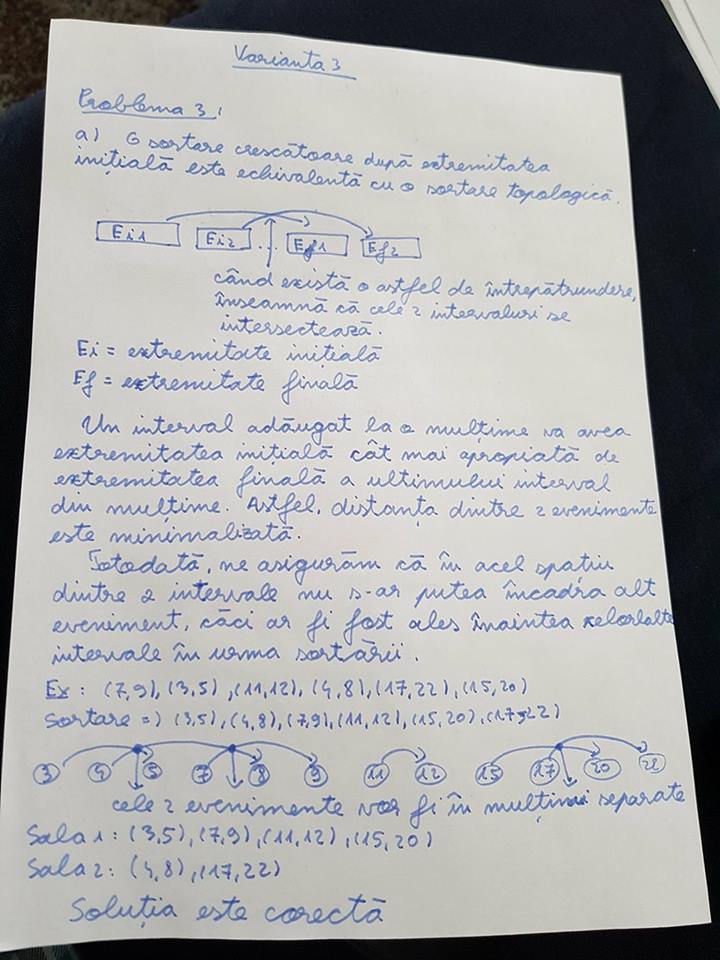 Varianta 3
Problema 3:
a) O sortare crescătoare după extremitatea
inițială este echivalentă cu o sortare topologică.
Ei1 Ei2 ... Ef1 Ef2
când există o astfel de întrepătrundere,
înseamnă că cele 2 intervaluri se
intersectează.
Ei = extremitate inițială
Ef = extremitate finală
Un interval adăugat la o mulțime va avea
extremitatea inițială cât mai apropiată de
extremitatea finală a ultimului interval
din mulțime. Astfel, distanța dintre 2 evenimente
este minimalizată.
Totodată, ne asigurăm că în acel spațiu
dintre 2 intervale nu s-ar putea încadra alt
eveniment, căci ar fi fost ales înaintea celorlalte
intervale în urma sortării.
Ex: (7,9), (3,5), (11,12), (4,8), (17,22), (15,20)
Sortare => (3,5), (4,8), (7,9), (11,12), (15,20), (17,22)
3 4 5 7 8 9 11 12 15 17 20 22
cele 2 evenimente vor fi în mulțimi separate
Sala 1: (3,5), (7,9), (11,12), (15,20)
Sala 2: (4,8), (17,22)
Soluția este corectă